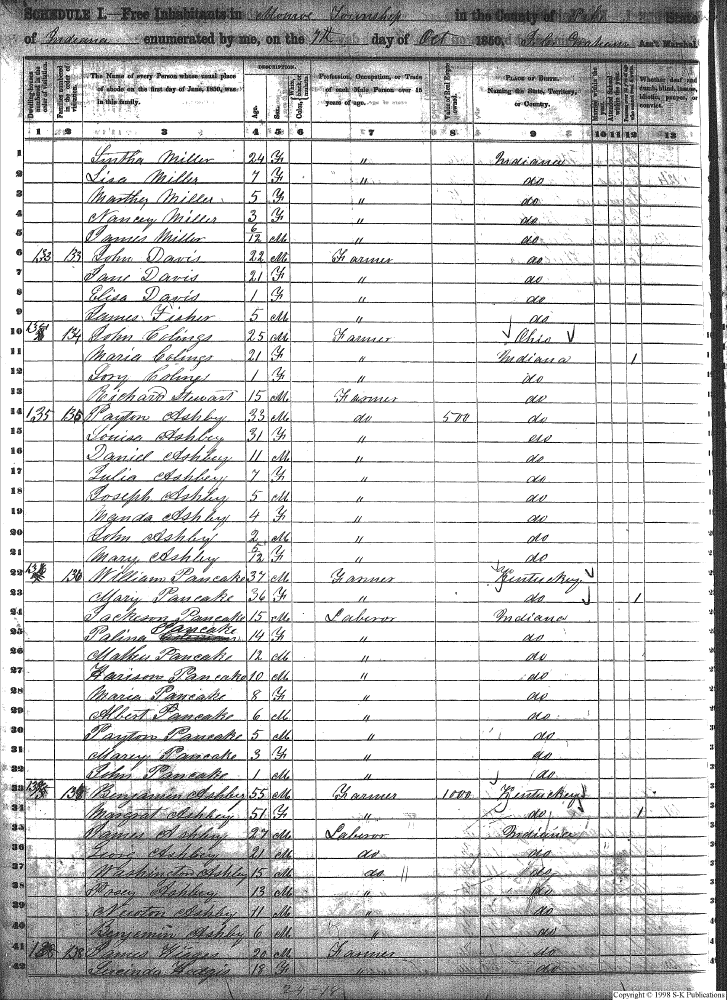 SCHEDULE I.—Free Inhabitants in Monroe Township in the County of Pike State
of Indiana enumerated by me, on the 7th day of Oct 1850. Ass't Marshal
Dwelling-houses numbered in the order of visitation.
Families numbered in the order of visitation.
The Name of every Person whose usual place of abode on the first day of June, 1850, was in this family.
DESCRIPTION.
Age.
Sex.
Color, White, black, or mulatto.
Profession, Occupation, or Trade of each Male Person over 15 years of age.
Value of Real Estate owned.
PLACE OF BIRTH. Naming the State, Territory, or Country.
Whether deaf and dumb, blind, insane, idiotic, pauper, or convict.
1 2 3 4 5 6 7 8 9 10 11 12 13
1 Sintha Miller 24 F " Indiana
2 Lisa Miller 7 F " do
3 Marthey Miller 5 F " do
4 Nancey Miller 3 F " do
5 James Miller 6/12 M " do
6 133 133 John Davis 22 M Farmer do
7 Jane Davis 21 F " do
8 Elisa Davis 1 F " do
9 James Fisher 5 M " do
10 134 John Colings 25 M Farmer Ohio
11 Maria Colings 21 F " Indiana 1
12 1 F " do
13 Richard Stewart 15 M Farmer do
14 135 135 Payton Ashby 33 M do 500 do
15 Louisa Ashbey 31 F " do
16 Daniel Ashbey 11 M " do
17 Julia Ashbey 7 F " do
18 Joseph Ashby 5 M " do
19 Manda Ashby 4 F " do
20 John Ashby 2 M " do
21 Mary Ashbey 5/12 F " do
22 136 William Pancake 37 M Farmer Kentuckey
23 Mary Pancake 36 F " do 1
24 Jackeson Pancake 15 M Laberor Indiana
25 Palina Pancake 14 F " do
26 Mathew Pancake 12 M " do
27 Harison Pancake 10 M " do
28 Maria Pancake 8 F " do
29 Albert Pancake 6 M " do
30 Payton Pancake 5 M " do
31 Marey Pancake 3 F " do
32 John Pancake 1 M " do
33 Benjamin Ashbey 55 M Farmer 1000 Kentuckey
34 Margrat Ashbey 51 F " do 1
35 James Ashby 27 M Laberor Indiana
36 Georg Ashbey 21 M do do
37 Washington Ashby 15 M do " do
38 Ashbey 13 M " do
39 Newton Ashby 11 M " do
40 Benjamin Ashby 6 M " do
41 138 James 20 M Farmer do
42 Lucinda 18 F " do
24-18
Copyright © 1998 S-K Publications